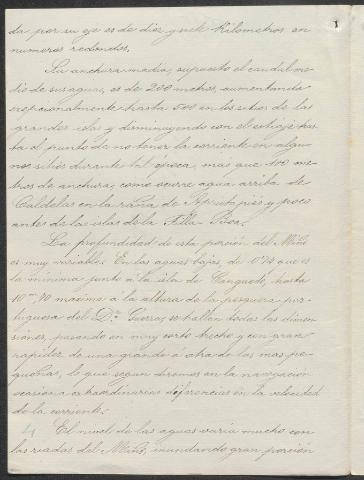 da por su eje es de diez y seis Kilometros en
numeros redondos.
Su anchura media, supuesto el caudal me-
dio de sus aguas, es de 200 metros, aumentando
excepcionalmente hasta 500 en los sitios de las
grandes islas y disminuyendo con el estiaje has-
ta el punto de no tener la corriente en algu-
nos sitios durante tal época, mas que 100 me-
tros de anchura, como ocurre agua arriba de
Caldelas en la raina de y poco
antes de las islas de la Filla Boa.
La profundidad de esta porción del Miño
es muy variable. En las aguas bajas de 0'74 que es
la mínima junto á la isla de Canguedo, hasta
10m,70 máxima á la altura de la pesquera por-
tuguesa del Dr. Guerra, se hallan todas las dimen-
siones, pasando en muy corto trecho y con gran
rapidez de una grande á otra de las mas pe-
queñas, lo que segun diremos en la navegación
ocasiona extraordinarias diferencias en la velocidad
de la corriente.
El nivel de las aguas varía mucho con
las riadas del Miño, inundando gran porción
1